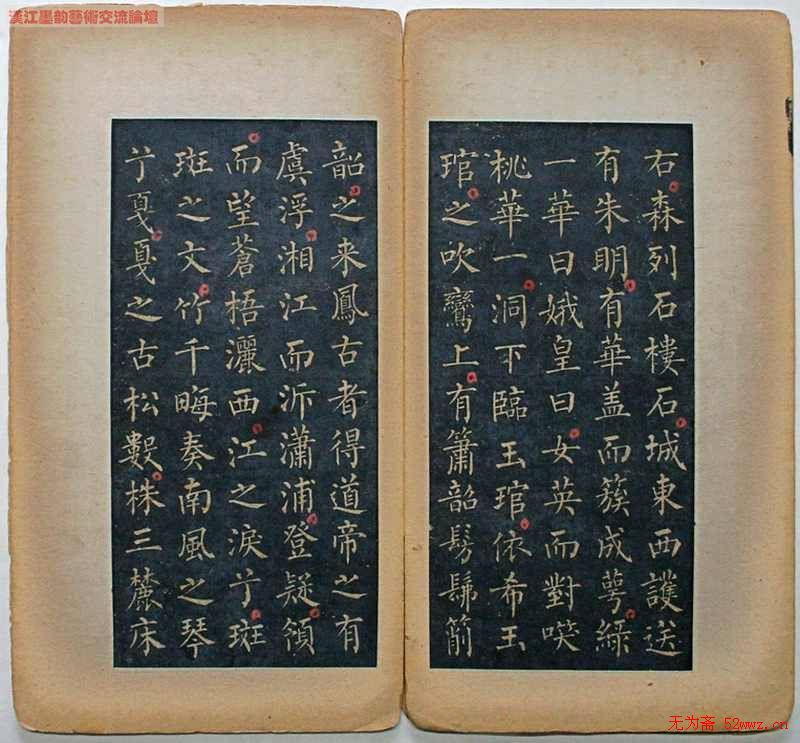 漢江墨韵藝術交流論壇
右森列石樓石城東西護送
有朱明有華盖而簇成萼緑
一華曰娥皇曰女英而對㗛
桃華一洞下臨玉琯依希玉
琯之吹鸞上有簫韶髣髴箾
韶之来鳳古者得道帝之有
虞浮湘江而泝瀟浦登疑領
而望蒼梧灑西江之淚兮斑
斑之文竹千畮奏南風之琴
兮戛戛之古松數株三麓床
无为斋 52wwz.cn